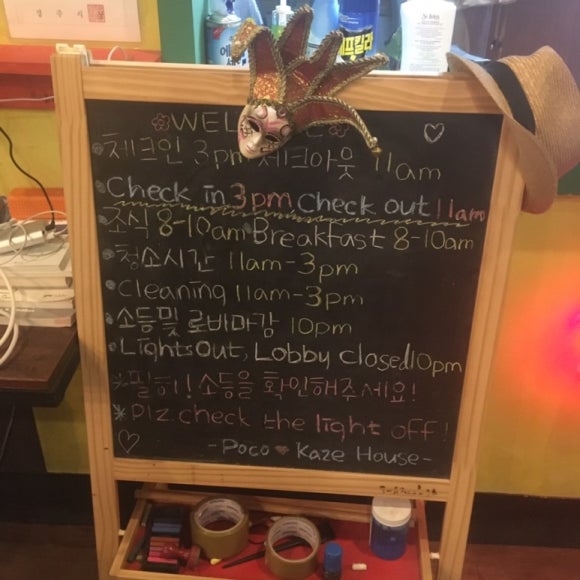 경주시
에프킬라
WEL E
체크인 3pm 체크아웃 11am
Check in 3pm Check out 11am
조식 8-10am Breakfast 8-10am
청소시간 11am-3pm
Cleaning 11am-3pm
소등및 로비마감 10pm
Lights Out, Lobby Closed 10pm
※필히! 소등을 확인해주세요!
※Plz. check the light off!
- Poco ♥ Kaze House -